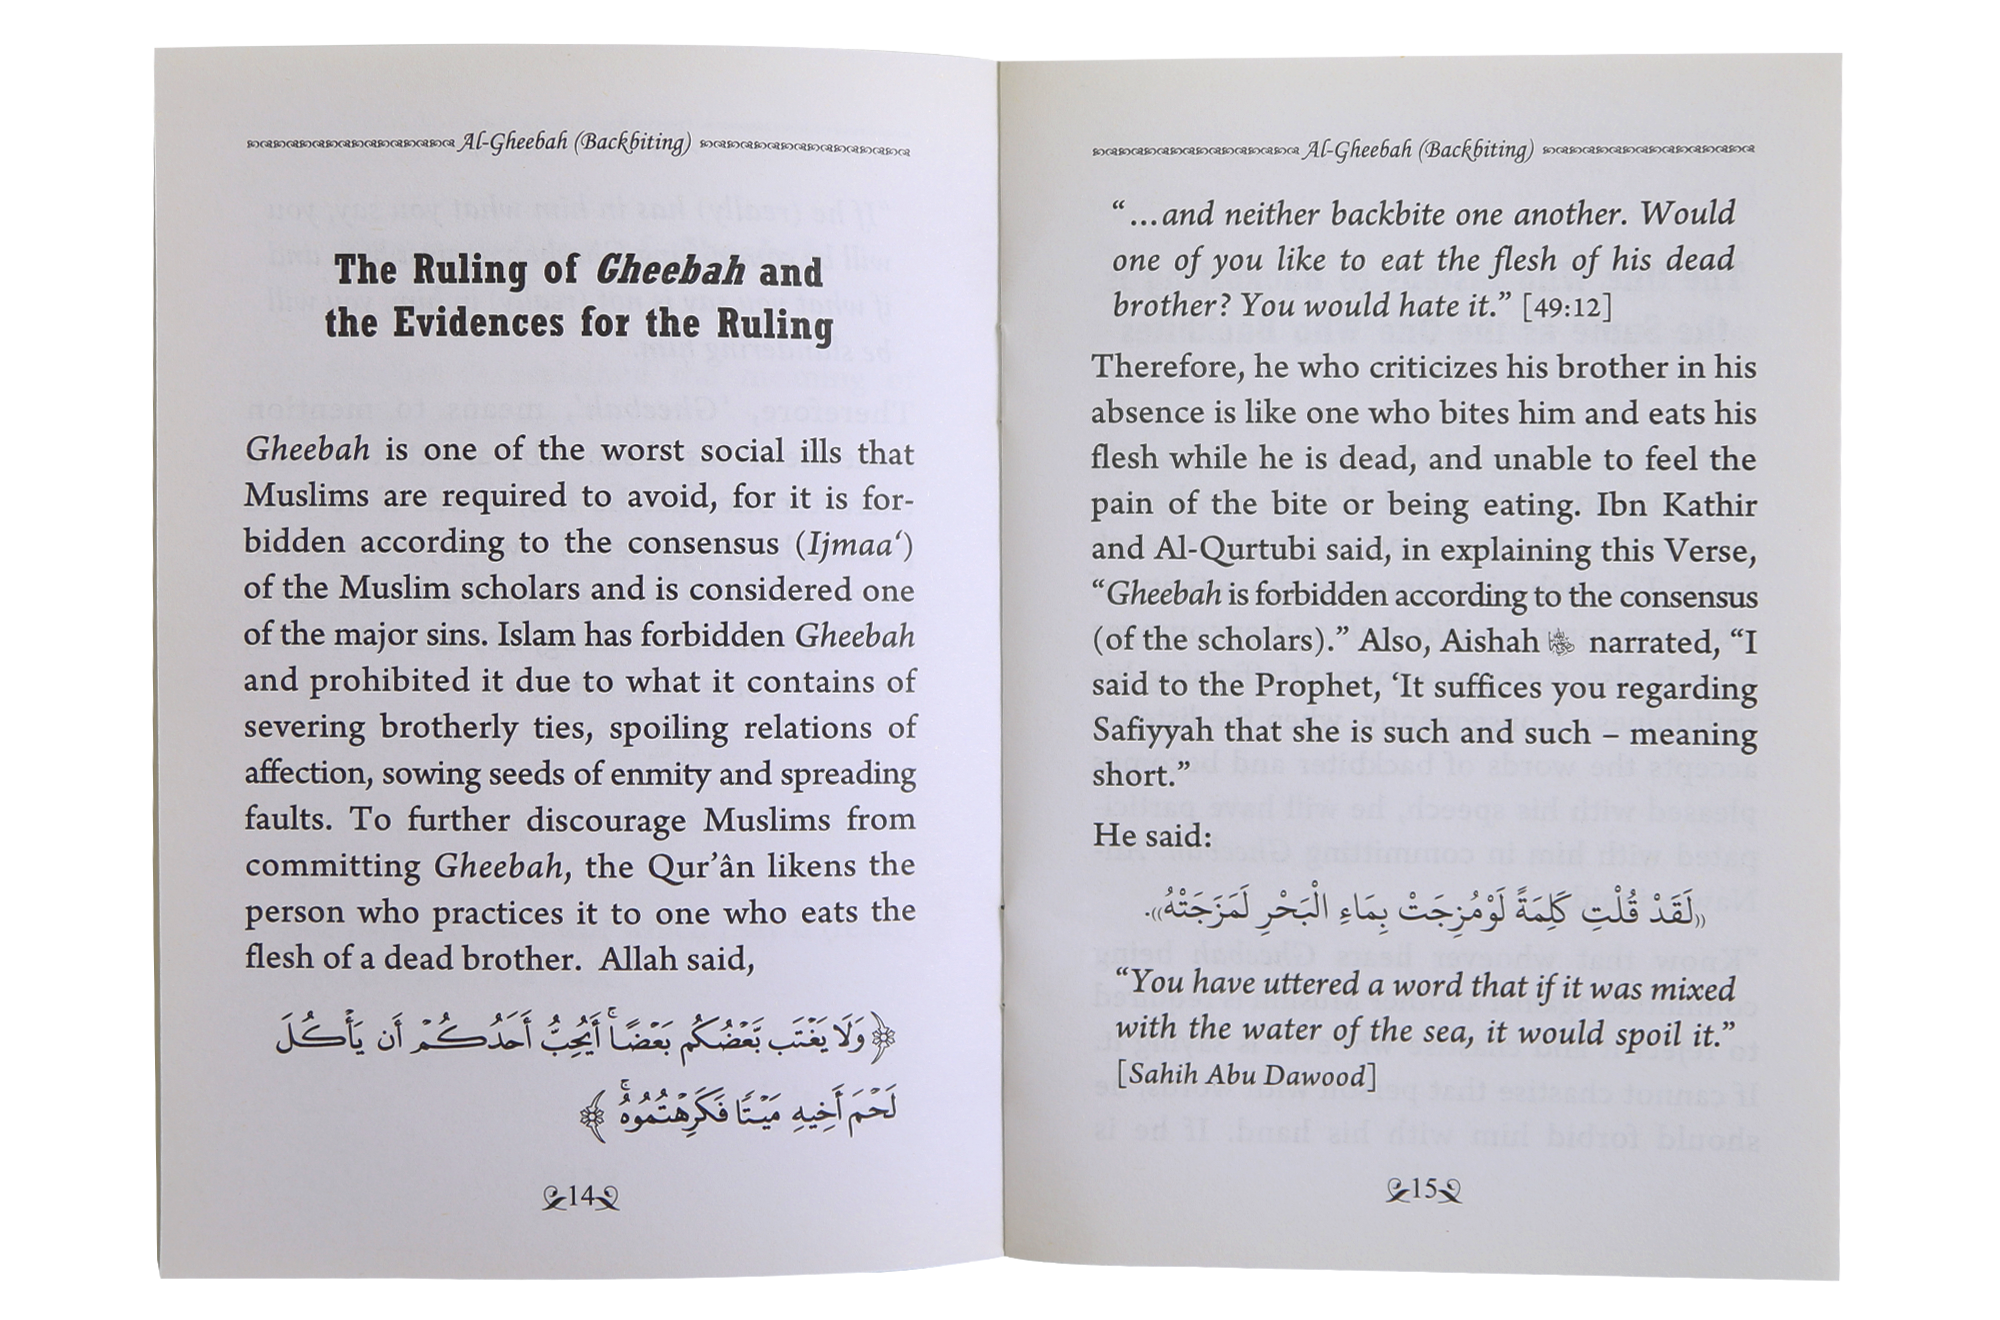 Al-Gheebah (Backbiting)
The Ruling of Gheebah and
the Evidences for the Ruling
Gheebah is one of the worst social ills that
Muslims are required to avoid, for it is for-
bidden according to the consensus (Ijmaa‘)
of the Muslim scholars and is considered one
of the major sins. Islam has forbidden Gheebah
and prohibited it due to what it contains of
severing brotherly ties, spoiling relations of
affection, sowing seeds of enmity and spreading
faults. To further discourage Muslims from
committing Gheebah, the Qur’ân likens the
person who practices it to one who eats the
flesh of a dead brother. Allah said,
﴿وَلَا يَغْتَب بَّعْضُكُم بَعْضًا ۚ أَيُحِبُّ أَحَدُكُمْ أَن يَأْكُلَ
لَحْمَ أَخِيهِ مَيْتًا فَكَرِهْتُمُوهُ ۚ﴾
14
Al-Gheebah (Backbiting)
“...and neither backbite one another. Would
one of you like to eat the flesh of his dead
brother? You would hate it.” [49:12]
Therefore, he who criticizes his brother in his
absence is like one who bites him and eats his
flesh while he is dead, and unable to feel the
pain of the bite or being eating. Ibn Kathir
and Al-Qurtubi said, in explaining this Verse,
“Gheebah is forbidden according to the consensus
(of the scholars).” Also, Aishah narrated, “I
said to the Prophet, ‘It suffices you regarding
Safiyyah that she is such and such – meaning
short.”
He said:
((لَقَدْ قُلْتِ كَلِمَةً لَوْ مُزِجَتْ بِمَاءِ الْبَحْرِ لَمَزَجَتْهُ)).
“You have uttered a word that if it was mixed
with the water of the sea, it would spoil it.”
[Sahih Abu Dawood]
15